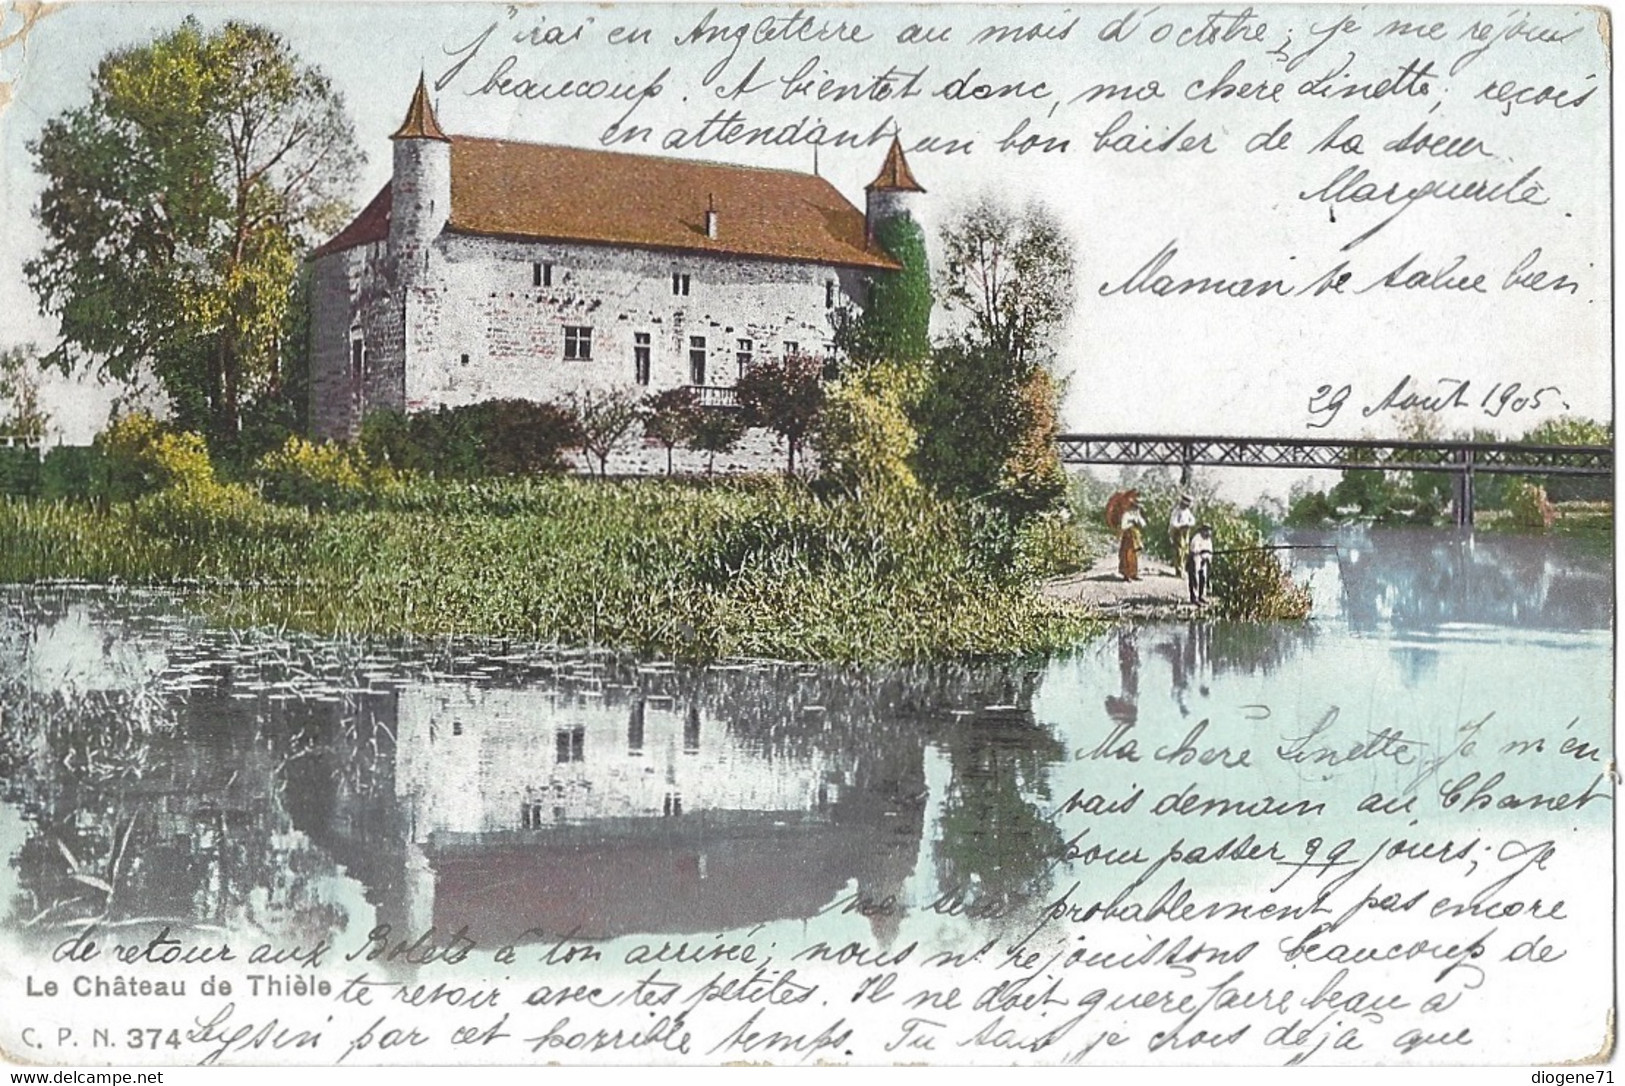 j'irai en Angleterre au mois d'octobre; je me réjouis
beaucoup. A bientôt donc, ma chère Linette; reçois
en attendant un bon baiser de ta soeur
Marguerite.
Maman te salue bien.
29 Août 1905.
Ma chère Linette, Je m'en
vais demain au Chanet
pour passer 99 jours; Je
ne serai probablement pas encore
de retour aux Bolets à ton arrivée; nous ns réjouissons beaucoup de
te revoir avec tes petites. Il ne doit guère faire beau à
Leysin par cet horrible temps. Tu sais, je crois déjà que
Le Château de Thièle
C. P. N. 374
diogene71